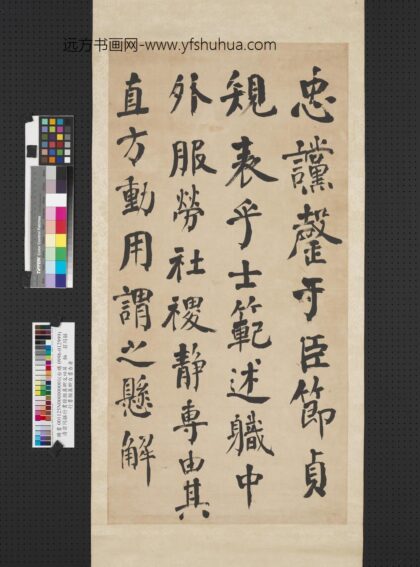 远方书画网-www.yfshuhua.com
忠讜罄于臣節貞
規表乎士範述職中
外服勞社稷静專由其
直方動用謂之懸解